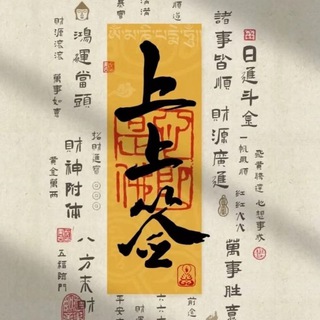 上上签
日進斗金
諸事皆順
財源廣進
一帆風順
飛黃騰達
心想事成
紅紅火火
萬事勝意
鴻運當頭
財源滾滾
萬事如意
招財進寶
黃金萬兩
財神附体
八方来財
五福臨門
平安